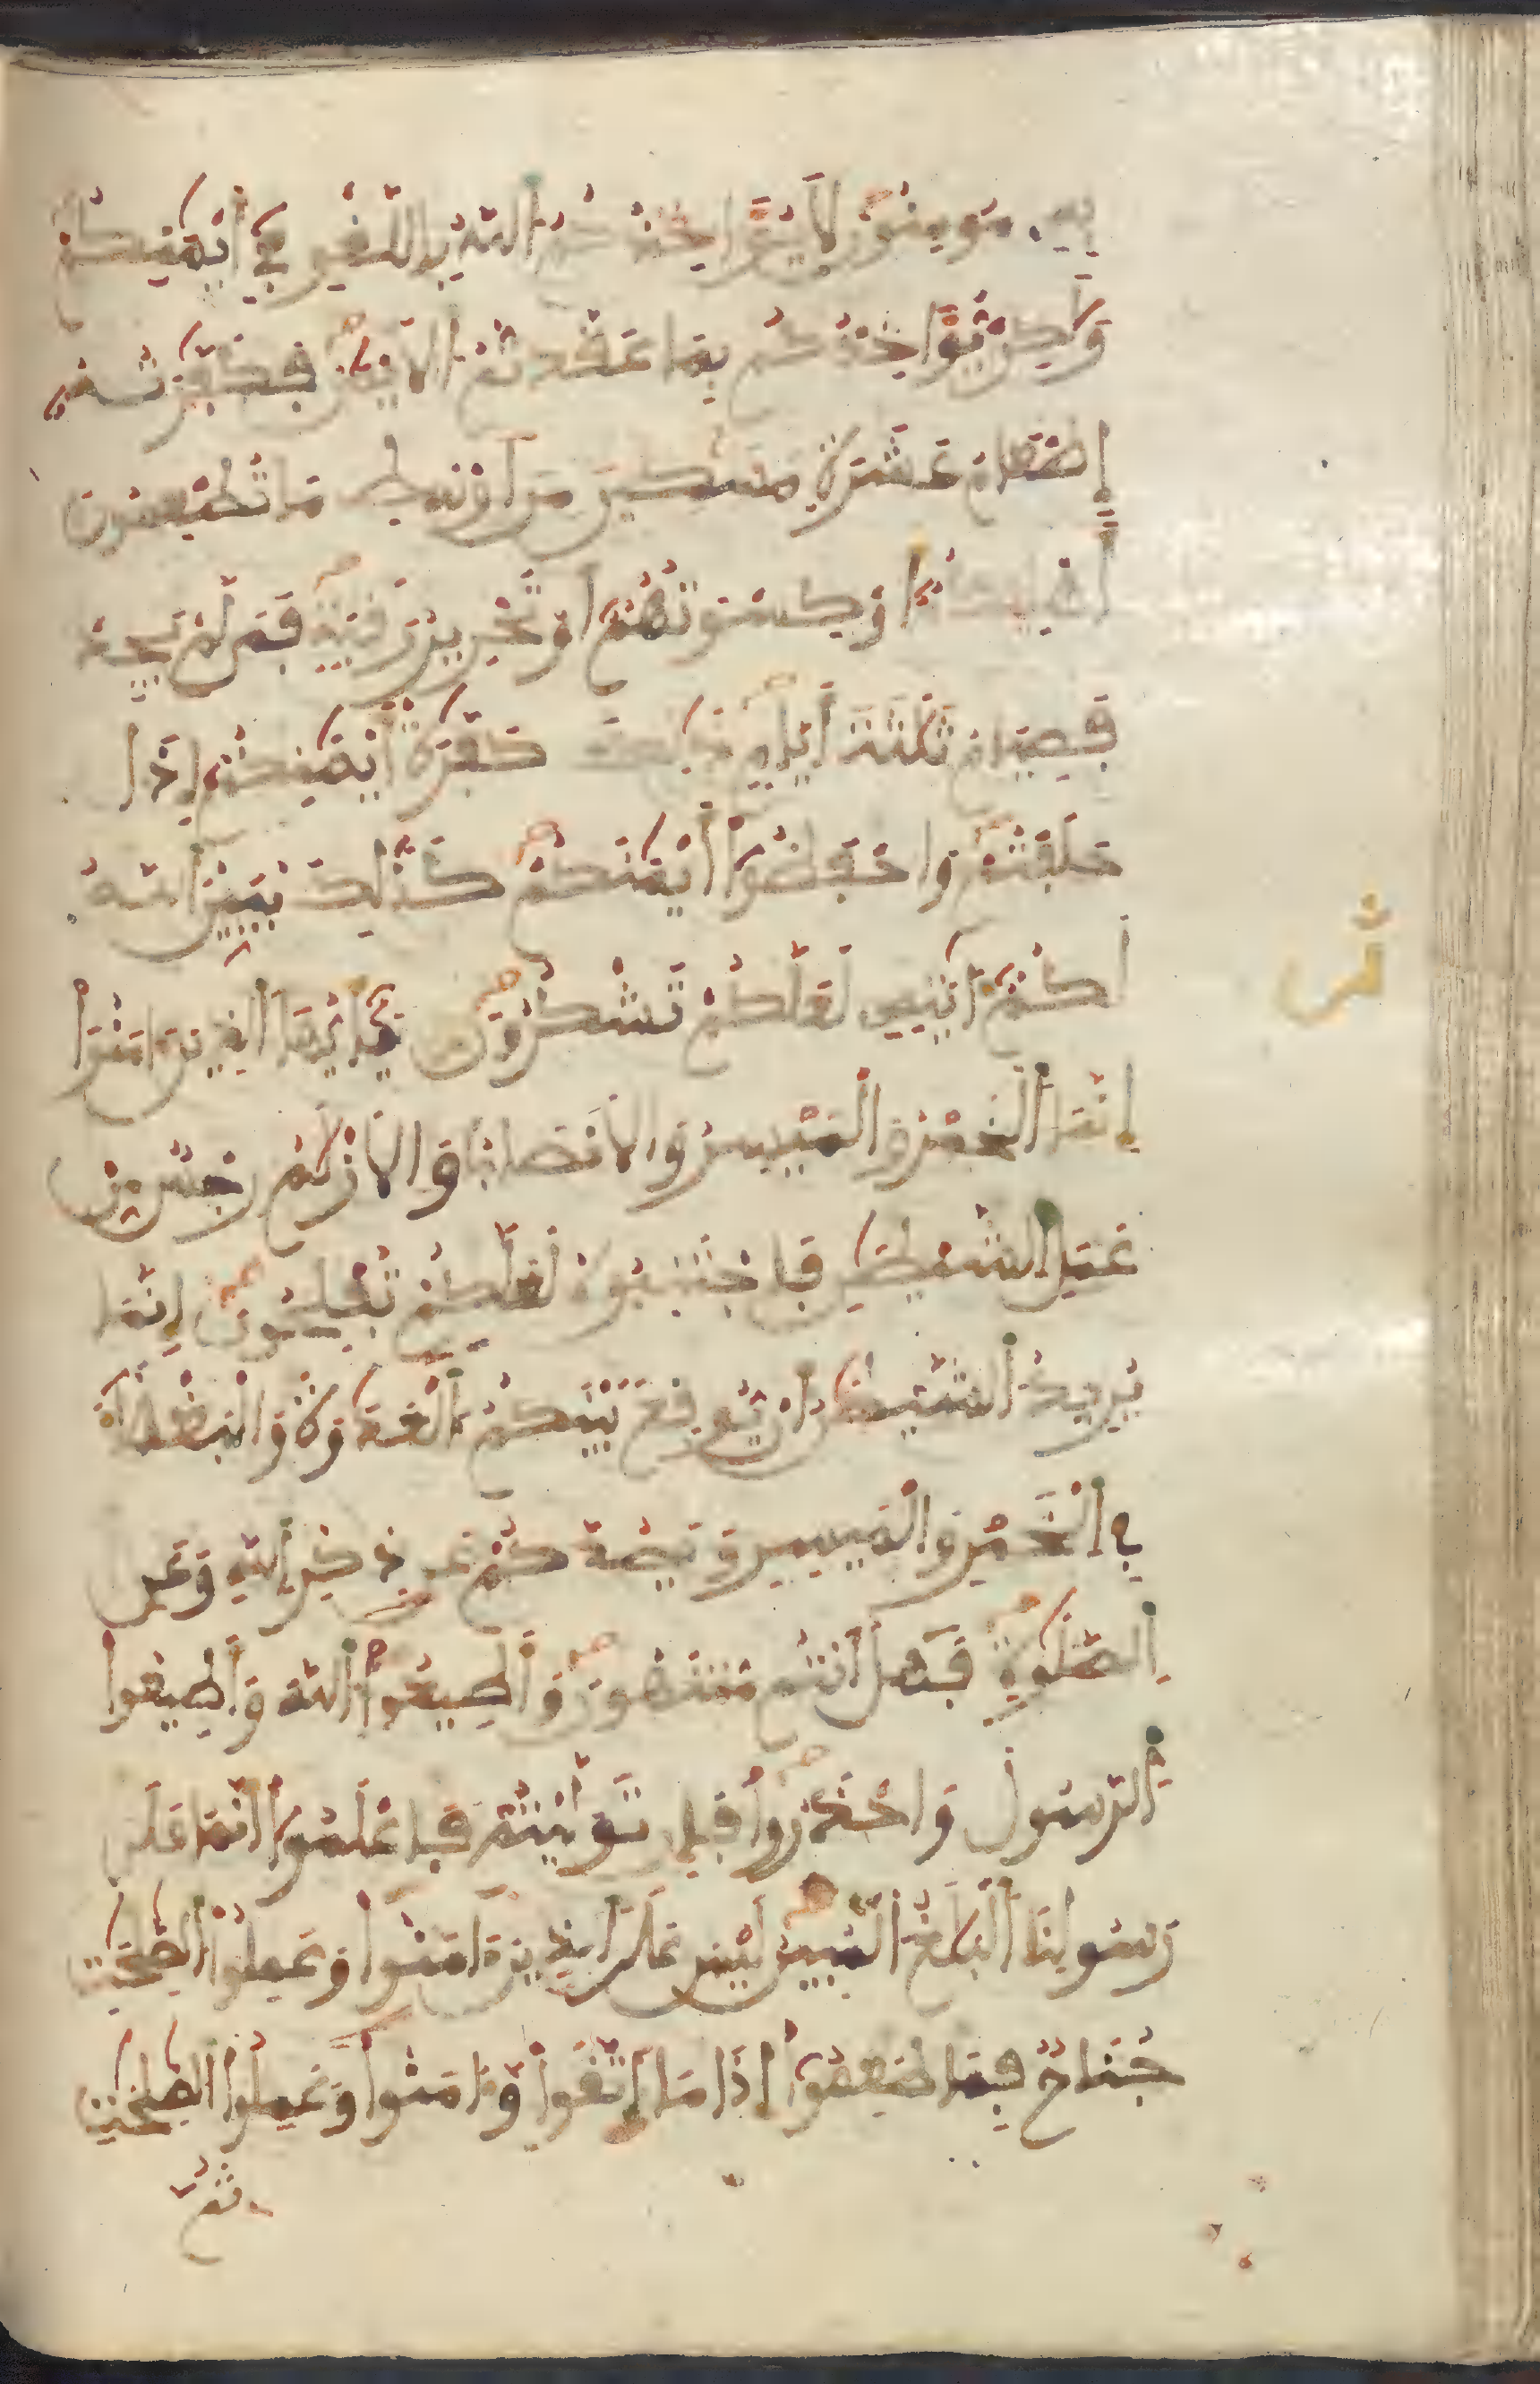 به مومنون لا يواخذكم الله باللغو في أيمنكم
ولكن يواخذكم بما عقدتم الايمن فكفرته
إطعام عشرة مسكين من اوسط ما تطعمون
أهليكم او كسوتهم او تحرير رقبة فمن لم يجد
فصيام ثلثة أيام ذلك كفرة أيمنكم إذا
حلفتم واحفظوا أيمنكم كذلك يبين الله
لكم ءايته لعلكم تشكرون يأيها الذين ءامنوا
ثمن
إنما الخمر والميسر والانصاب والازلم رجس من
عمل الشيطن فاجتنبوه لعلكم تفلحون إنما
يريد الشيطن ان يوقع بينكم العدوة والبغضاء
في الخمر والميسر ويصدكم عن ذكر الله وعن
الصلوة فهل أنتم منتهون وأطيعوا الله وأطيعوا
الرسول واحذروا فإن توليتم فاعلموا أنما على
رسولنا البلغ المبين ليس على الذين ءامنوا وعملوا الصلحت
جناح فيما طعموا إذا ما اتقوا وءامنوا وعملوا الصلحت
ثم